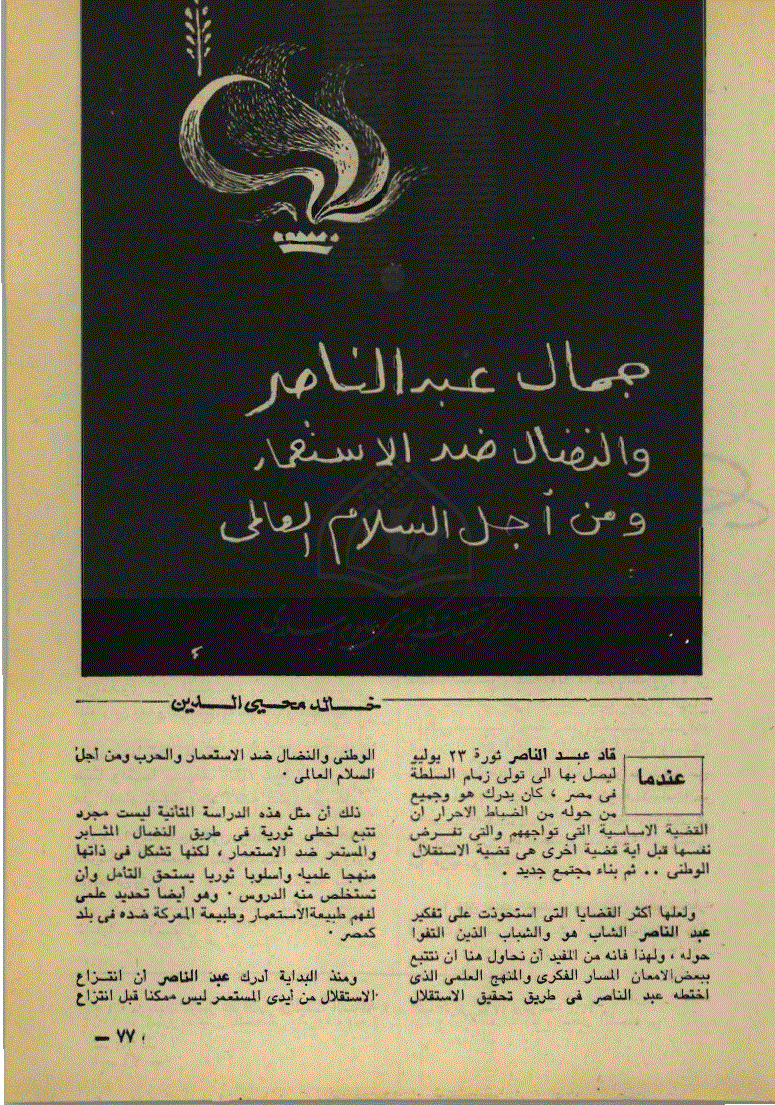 جمال عبد الناصر
والنضال ضد الاستعمار
ومن أجل السلام العالمى
خــالد محــيى الــدين
عندما
قاد عبــد الناصر ثورة ٢٣ يوليو
ليصل بها الى تولى زمام السلطة
فى مصر ، كان يدرك هو وجميع
من حوله من الضباط الاحرار ان
القضية الاساسية التى تواجههم والتى تفــرض
نفسها قبل أية قضية أخرى هى قضية الاستقلال
الوطنى ٠٠ ثم بناء مجتمع جديد ٠
ولعلها أكثر القضايا التى استحوذت على تفكير
عبد الناصر الشاب هو والشباب الذين التفوا
حوله ، ولهذا فانه من المفيد أن نحاول هنا ان نتتبع
ببعض الامعان المسار الفكرى والمنهج العلمى الذى
اختطه عبد الناصر فى طريق تحقيق الاستقلال
الوطنى والنضال ضد الاستعمار والحرب ومن أجل
السلام العالمى ٠
ذلك أن مثل هذه الدراسة المتأنية ليست مجرد
تتبع لخطى ثورية فى طريق النضال المثــابر
والمستمر ضد الاستعمار ، لكنها تشكل فى ذاتها
منهجا علميا وأسلوبا ثوريا يستحق التأمل وأن
تستخلص منه الدروس ٠ وهو أيضا تحديد علمى
لفهم طبيعة الاستعمار وطبيعة المعركة ضده فى بلد
كمصر ٠
ومنذ البداية أدرك عبد الناصر أن انتــزاع
الاستقلال من أيدى المستعمر ليس ممكنا قبل انتزاع
٧٧ —